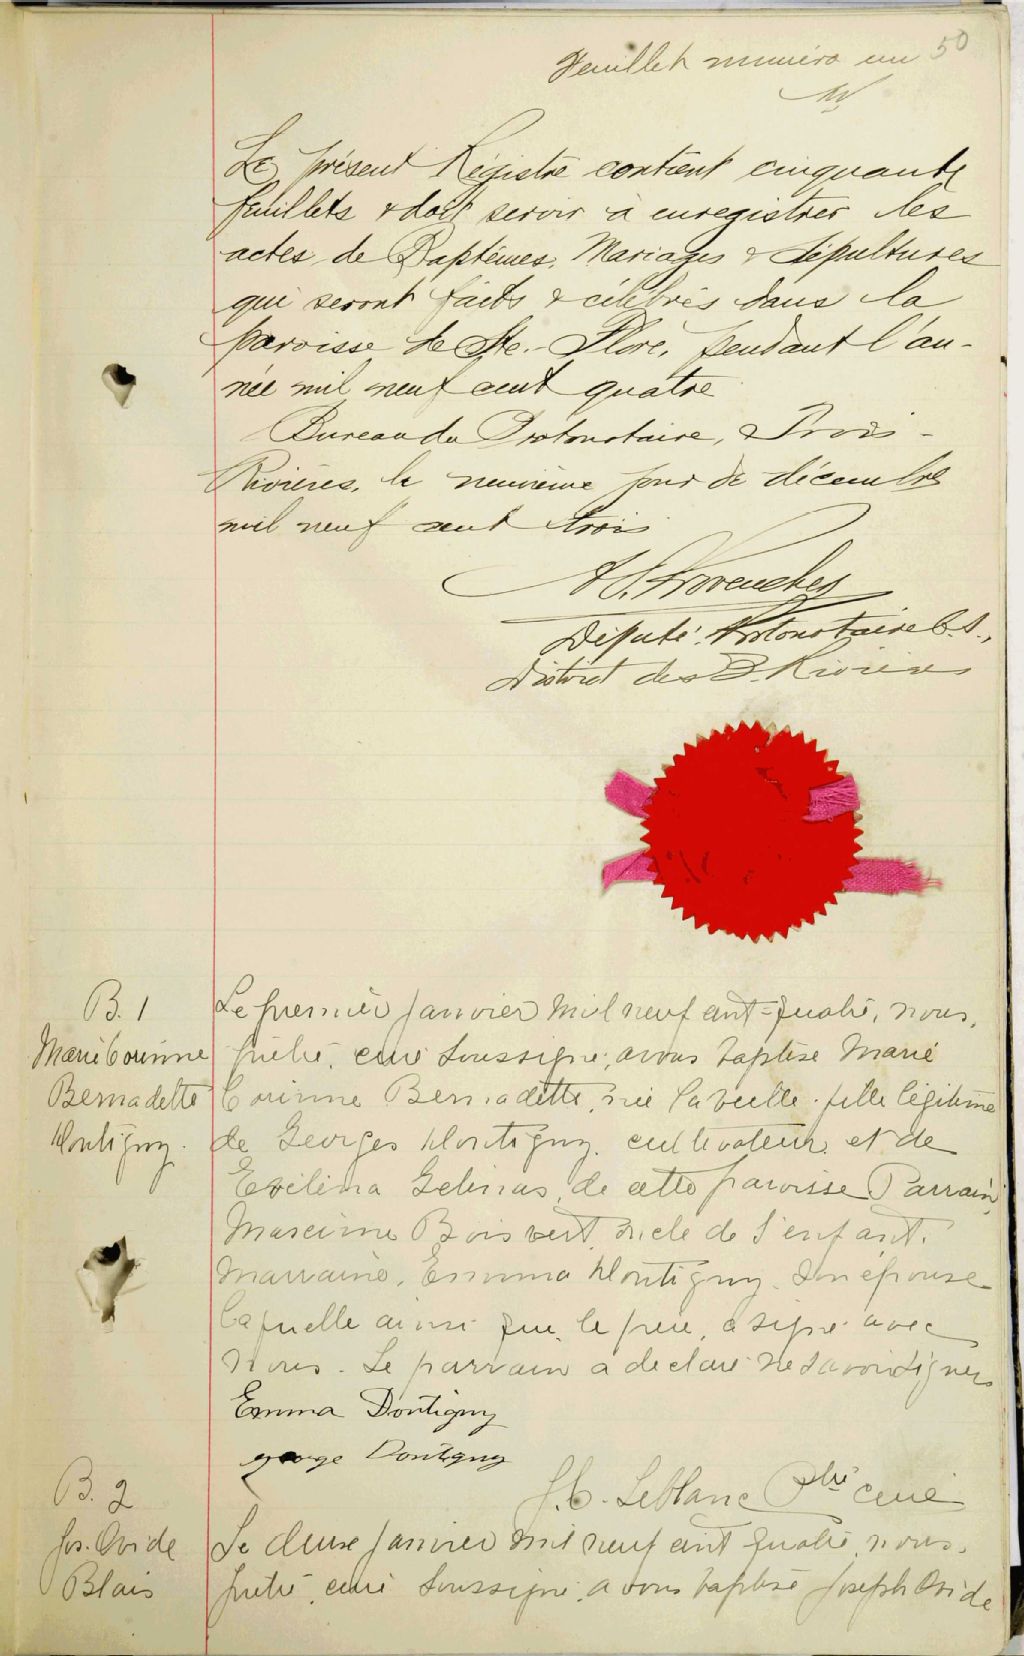 50
Feuillet numéro un
Le présent Régistre contient cinquante
feuillets & doit servir à enregistrer les
actes de Baptêmes, Mariages & Sépultures
qui seront faits & célébrés dans la
paroisse de Ste.-Flore, pendant l'an-
née mil neuf cent quatre
Bureau du Protonotaire, Trois-
Rivières, le neuvième jour de décembre
mil neuf cent trois
Provencher
Député Protonotaire C.S.,
District des 3. Rivières
B. 1
Marie Corinne
Bernadette
Dontigny.
Le premier janvier mil neuf cent-quatre, nous,
prêtre, curé soussigné, avons baptisé Marie
Corinne Bernadette, née la veille, fille légitime
de Georges Dontigny, cultivateur, et de
Evelina Gelinas, de cette paroisse Parrain,
Maxime Boisvert, oncle de l'enfant.
Marraine, Emma Dontigny, son épouse
laquelle ainsi que le père, a signé avec
nous. Le parrain a déclaré ne savoir signer
Emma Dontigny
george Dontigny
J.C. Leblanc Ptre curé
B. 2
Jos. Ovide
Blais
Le deux janvier mil neuf cent quatre, nous,
prêtre, curé soussigné, avons baptisé Joseph Ovide